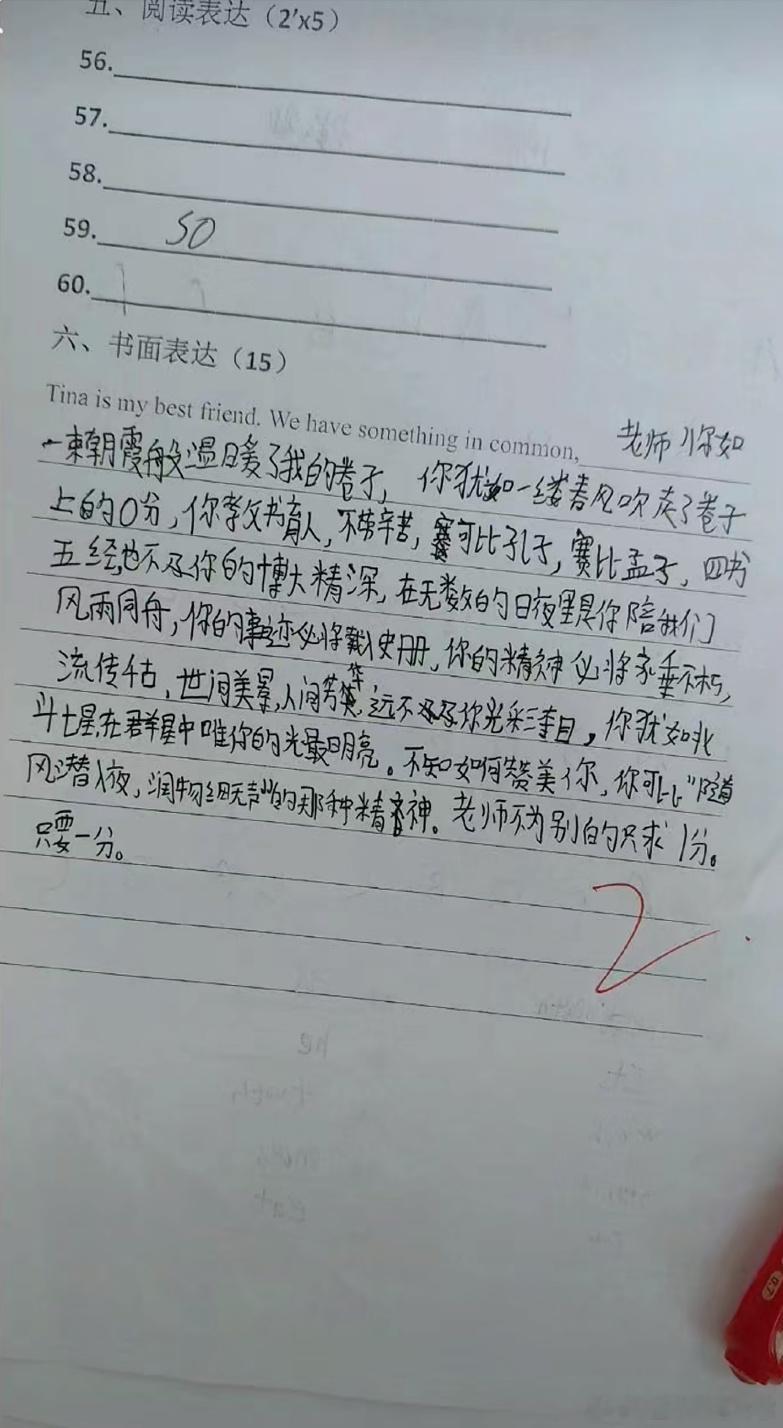 五、阅读表达（2'x5）
56.
57.
58.
59. so
60.
六、书面表达（15）
Tina is my best friend. We have something in common, 老师你如
一束朝霞般温暖了我的卷子，你犹如一缕春风吹走了卷子
上的0分，你教书育人，不劳辛苦，赛可比孔子，赛比孟子，四书
五经也不及你的博大精深，在无数的日夜里是你陪我们
风雨同舟，你的事迹必将载入史册，你的精神必将永垂不朽，
流传千古，世间美景，人间芳华，远不及你光彩夺目，你犹如北
斗七星，在群星中唯你的光最明亮。不知如何赞美你，你可比"随
风潜入夜，润物细无声"的那种精神。老师不为别的只求1分。
只要一分。
2
0.7